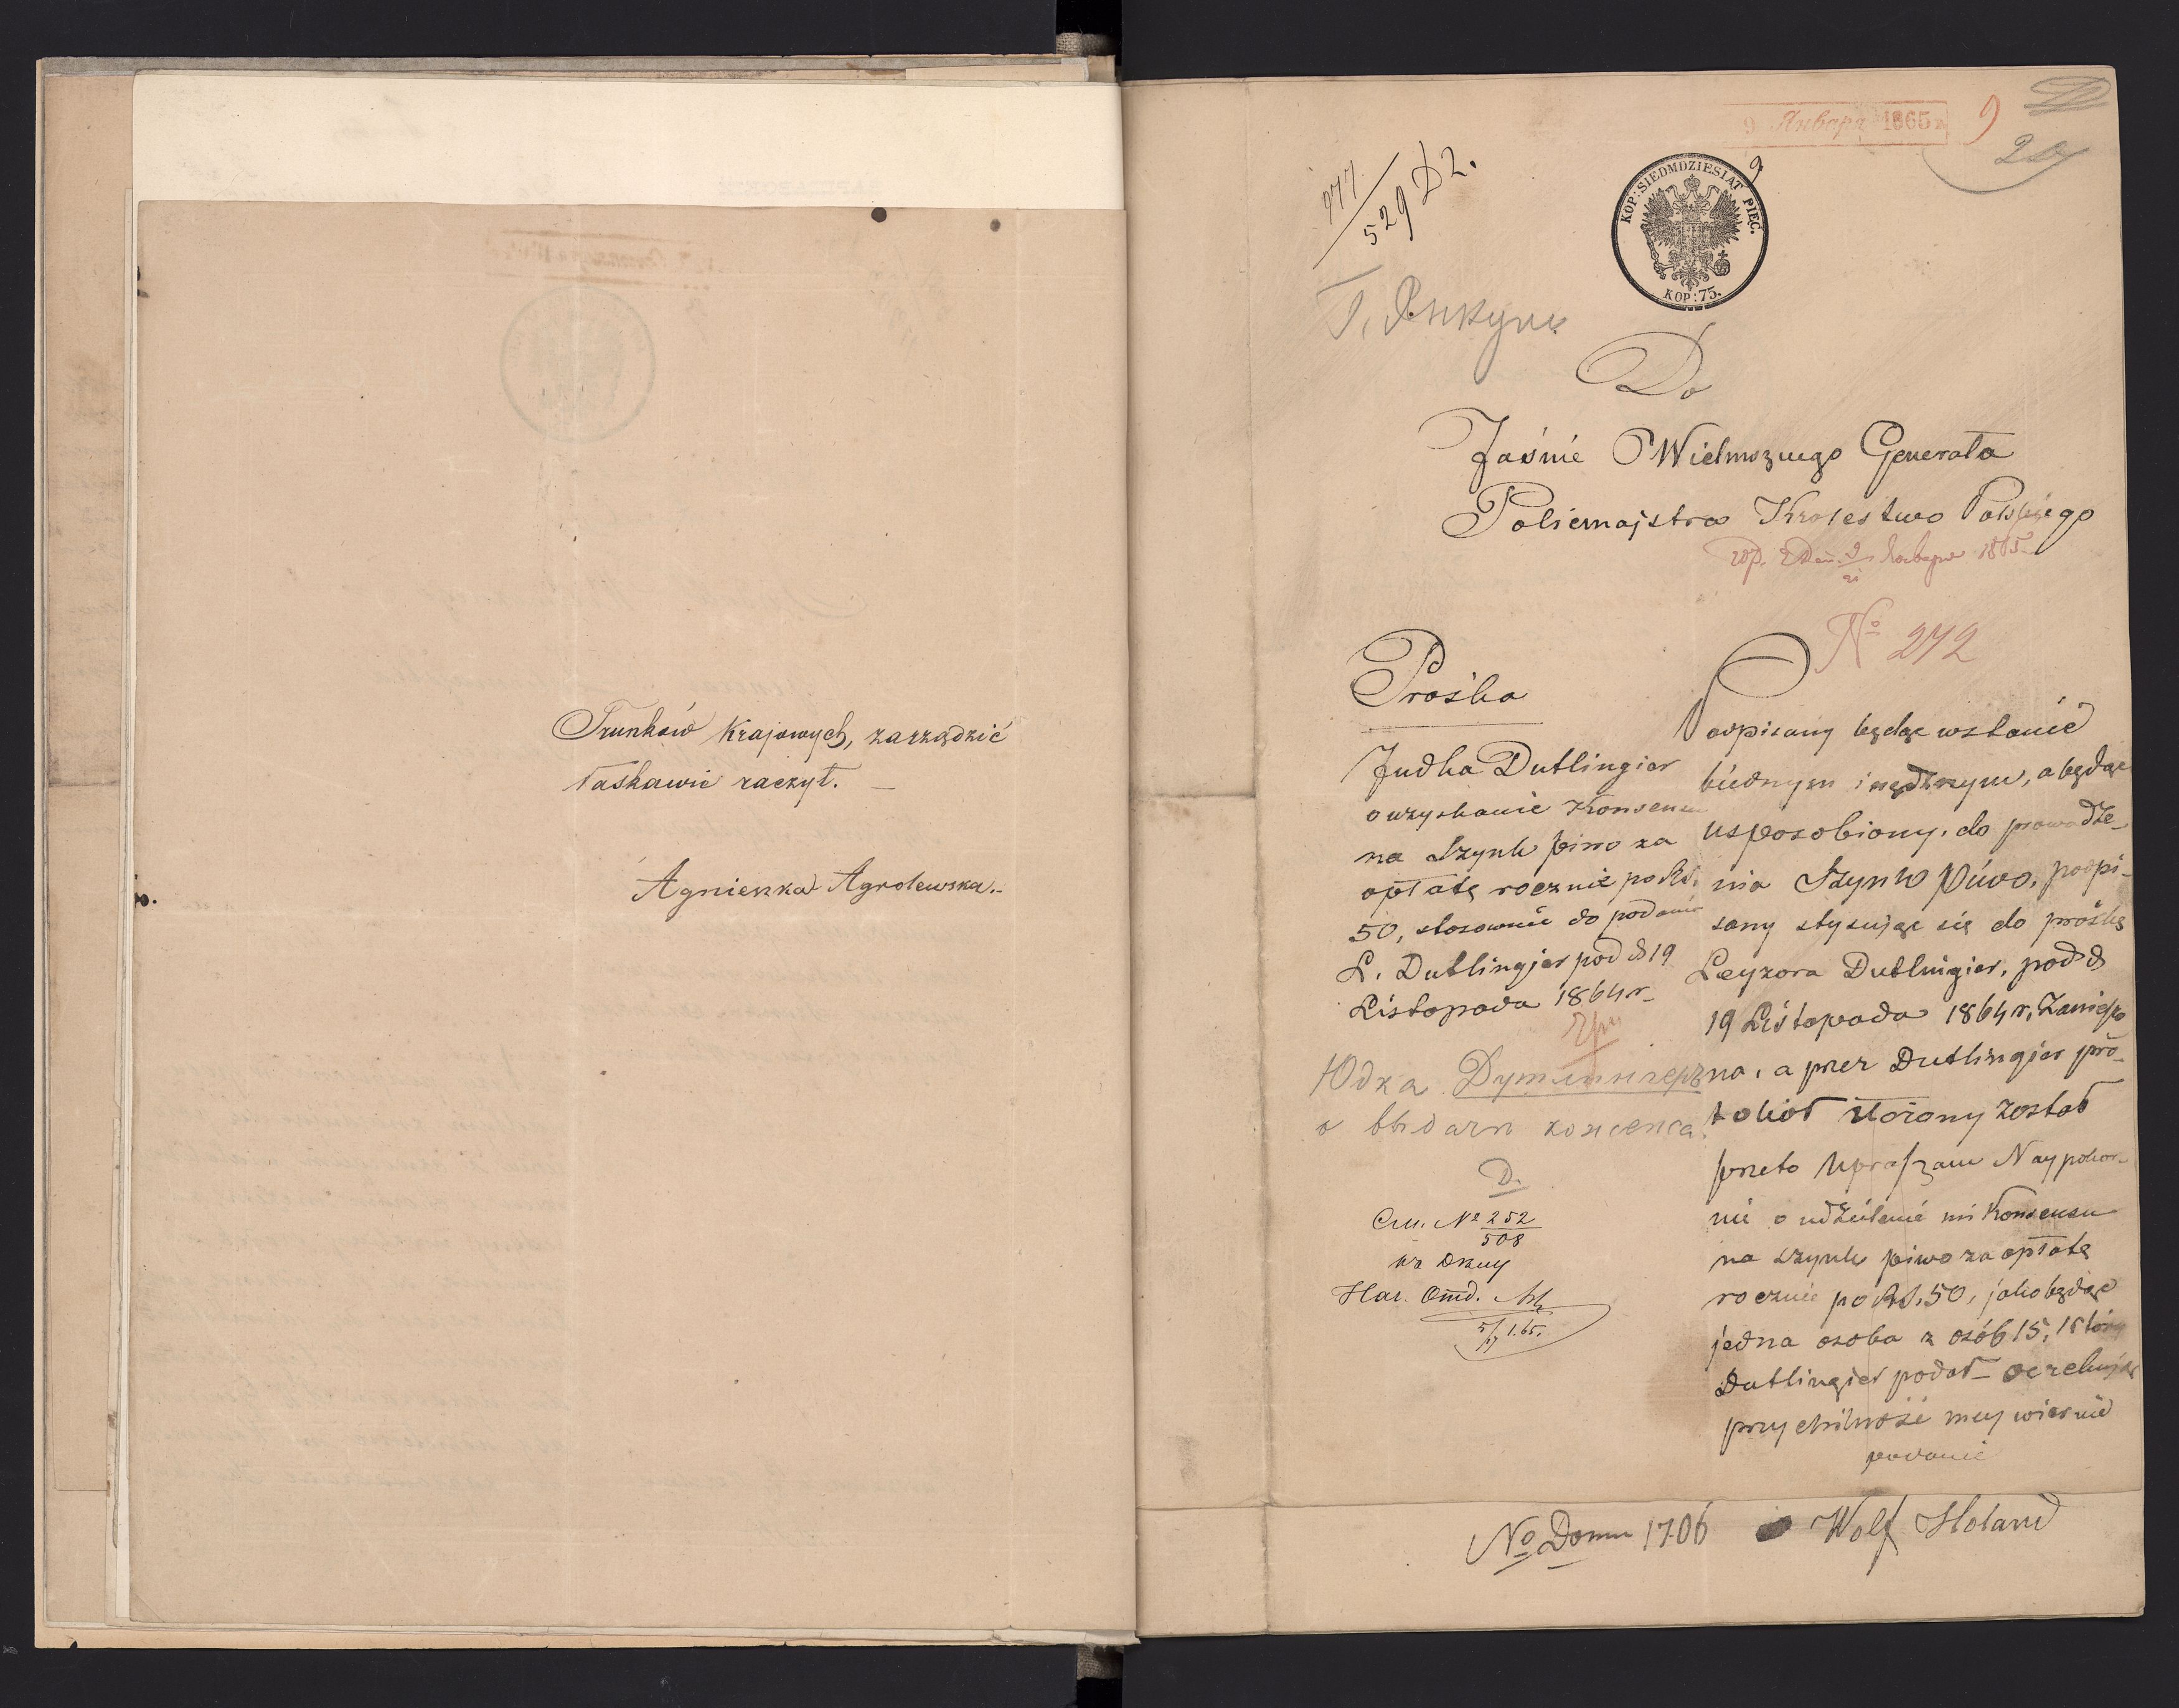 Trunków Krajowych, zarządzić
łaskawie raczył. —
Agnieszka Agrolewska..
9 Января 1865 г.
9
20
977
529 D2.
KOP: SIEDMDZIESIAT PIĘĆ.
KOP: 75.
Do
Jaśnie Wielmożnego Generała
Policmajstra Krolestwa Polskiego
1865
№ 272
Prośba
Judka Dutlingier
o uzyskanie Konsensu
na Szynk piwo za
opłatę rocznie po Rs.
50, stosownie do podanie
L. Dutlingier pod d 19
Listopada 1864 r.
Юдка
о выдачи консенса
D.
См. № 252
508
5/17 1.65.
Podpisany będąc wstanie
biednym i nędznym, a będąc
usposobiony, do prowadze-
nia Szynko Piwo, podpi-
sany stysując się do prośbę
Leyzora Dutlingier, pod d
19 Listopada 1864 r,
na, a przez Dutlingier pro-
tokoł złożony został
przeto Upraszam Naypokor-
nie o udzielenie mi Konsensu
na szynk piwo za opłatę
rocznie po Rs. 50, jako będąc
jedna osoba z osób 15, który
Dutlingier podał — oczekując
przychilność mey wiernie
podanie
№ Domu 1706 Wolf Holand